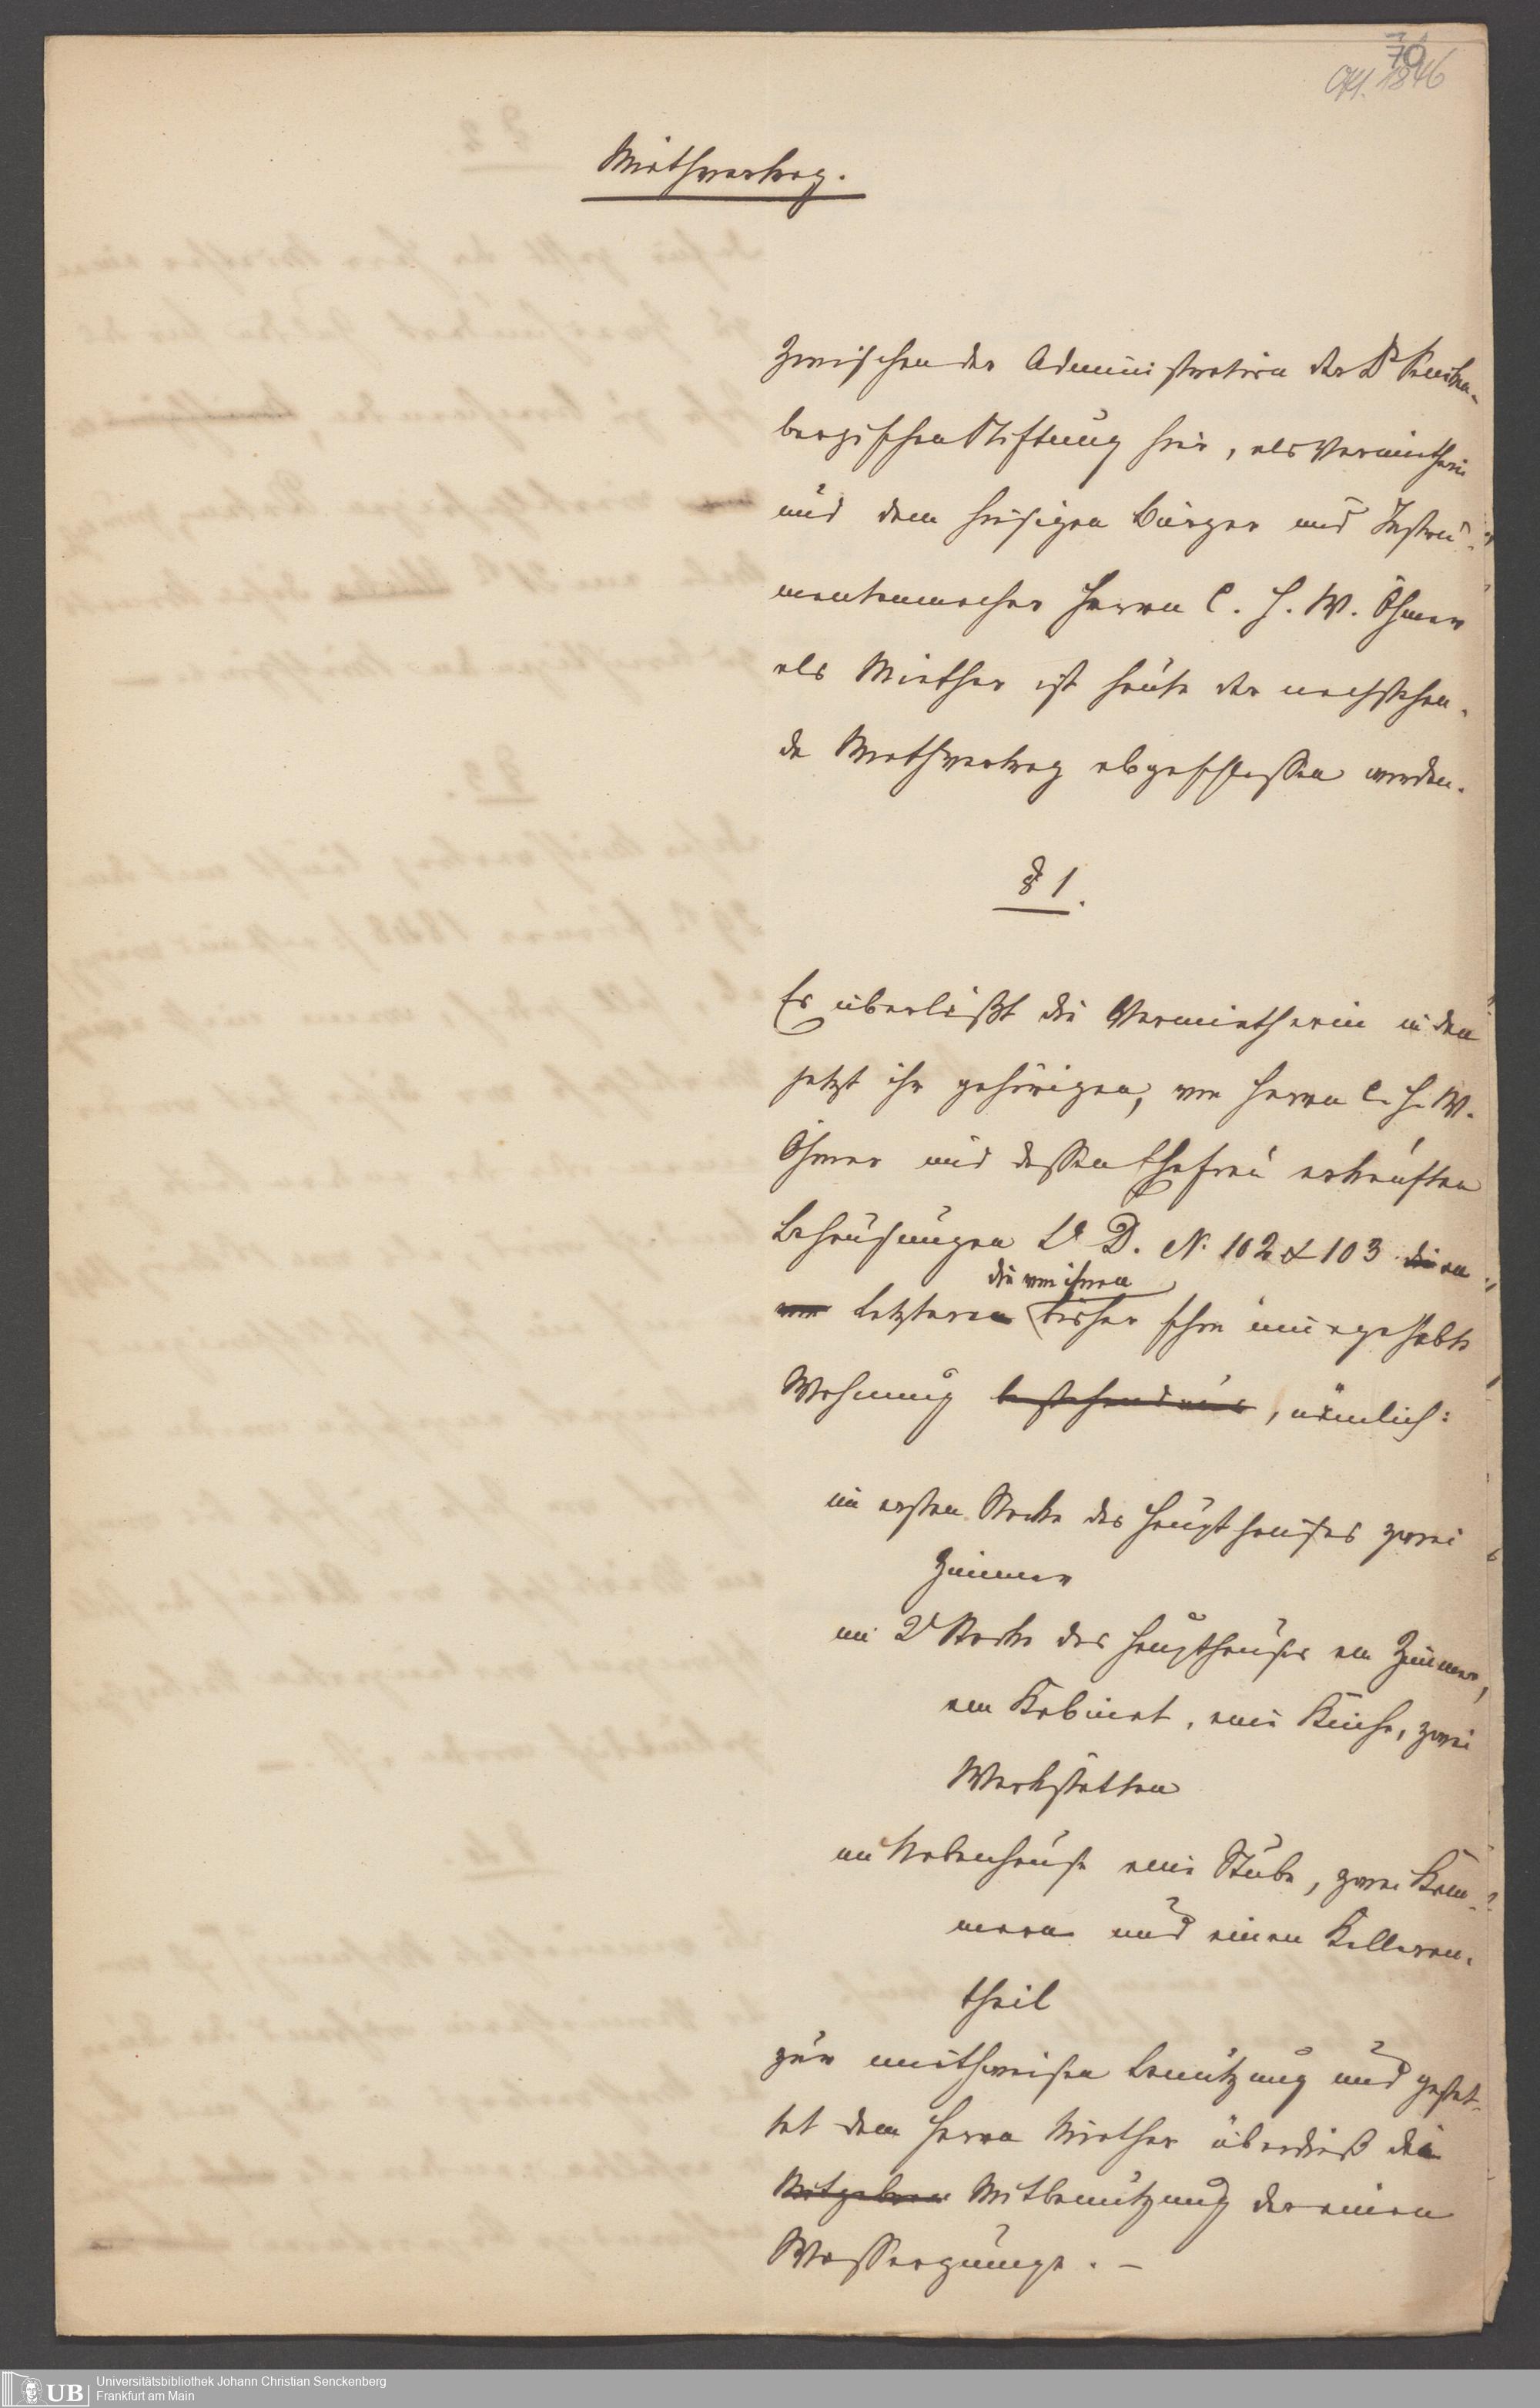 70
Okt. 1846
Miethvertrag.
Zwischen der Administration der Dr Senken-
bergischen Stiftung hier, als Vermietherin
und dem hiesigen Bürger und Instru-
mentenmacher Herrn C. H. W. Öhmer
als Miether ist heute der nachstehen-
de Miethvertrag abgeschlossen worden.
§ 1.
Es überläßt die Vermietherin in den
jetzt ihr gehörigen, von Herrn C. H. W.
Öhmer und dessen Ehefrau erkauften
Behausungen Lit D. No 102 & 103 die an
die von ihnen
von Letzteren bisher schon innegehabte
Wohnung bestehend aus, nämlich:
im ersten Stocke des Haupthauses zwei
Zimmer
im 2t Stocke des Haupthauses ein Zimmer,
ein Kabinet, eine Küche, zwei
Werkstätten
im Nebenhause eine Stube, zwei Kam-
mern und einen Kelleran-
theil
zur miethweisen Benutzung und gestat-
tet dem Herrn Miether überdieß die
Mitgebrau Mitbenutzung der einen
Wasserpumpe. –
UB
Universitätsbibliothek Johann Christian Senckenberg
Frankfurt am Main